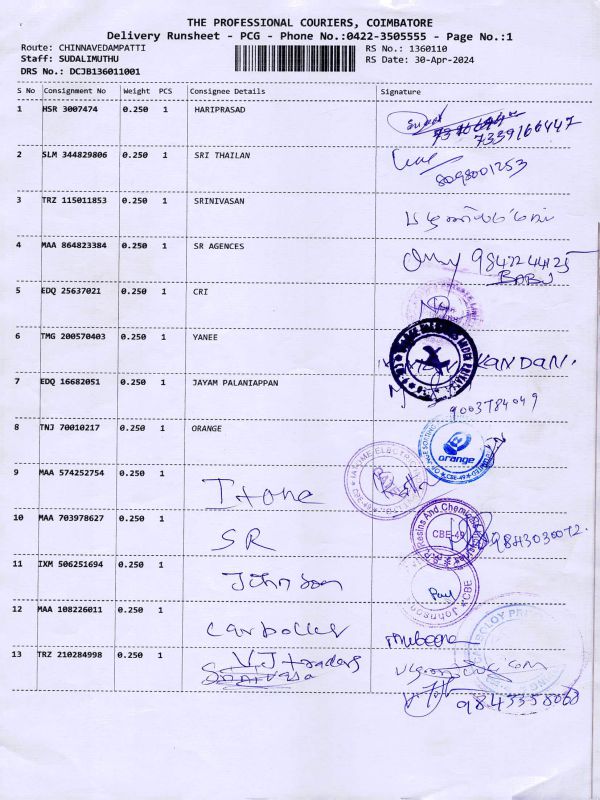 THE PROFESSIONAL COURIERS, COIMBATORE
Delivery Runsheet - PCG - Phone No.:0422-3505555 - Page No.:1
Route: CHINNAVEDAMPATTI RS No.: 1360110
Staff: SUDALIMUTHU RS Date: 30-Apr-2024
DRS No.: DCJB136011001
S No Consignment No Weight PCS Consignee Details Signature
1 HSR 3007474 0.250 1 HARIPRASAD
7339166447
2 SLM 344829806 0.250 1 SRI THAILAN
8098001253
3 TRZ 115011853 0.250 1 SRINIVASAN
4 MAA 864823384 0.250 1 SR AGENCES
9842244125
BABU
5 EDQ 25637021 0.250 1 CRI
6 TMG 200570403 0.250 1 YANEE
KANDAN.
7 EDQ 16682051 0.250 1 JAYAM PALANIAPPAN
9003784049
8 TNJ 70010217 0.250 1 ORANGE
orange
CBE-49
9 MAA 574252754 0.250 1
Itone
10 MAA 703978627 0.250 1
SR
Resins And Chemicals
CBE-49
9843030072.
11 IXM 506251694 0.250 1
Johnson
Johnson
CBE
12 MAA 108226011 0.250 1
Carboller
Mubeena
13 TRZ 210284998 0.250 1
V.J traders
9843358068